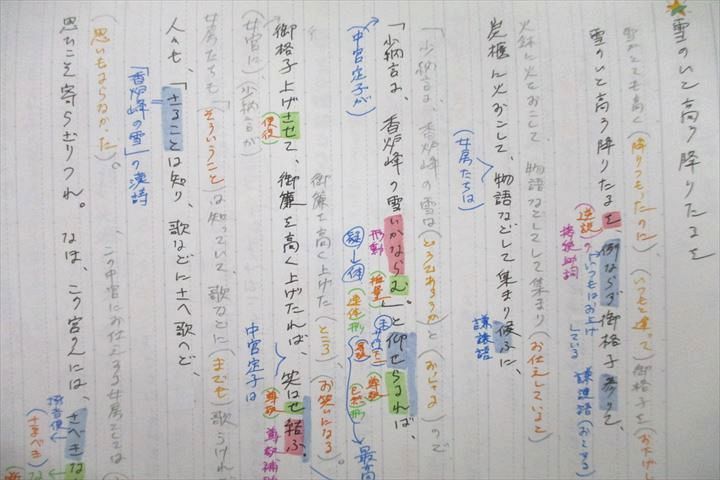 ★雪のいと高う降りたるを
雪がとても高く(降りつもったのに)、(いつもと違って)御格子を(お下げし
雪のいと高う降りたるを、例ならず御格子参りて、
逆説の接続助詞
いつもはお上げしている
謙譲語(おとずる)
火鉢に火をおこして、物語などをして集まり(お仕えしていると
炭櫃に火おこして、物語などして集まり候ふに、
女房たちは
謙譲語
「少納言よ、香炉峰の雪は(どうであろうか)と(おっしゃる)ので
「少納言よ、香炉峰の雪いかならむ。」と仰せらるれば、
中宮定子が
形動
推量
疑→体
連体形
尊敬
尊敬
已然形
最高
御簾を高く上げた(ところ)、(お笑いになる)。
御格子上げさせて、御簾を高く上げたれば、笑はせ給ふ。
使役
中宮定子は
尊敬
尊敬補助
(女官に)(少納言が
女房たちも「(そういうこと)は知っていて、歌などに(までも)歌うけれ
人々も、「さることは知り、歌などにさへ歌へど、
「香炉峰の雪」の漢詩
(思いもよらなかった)。この中宮にお仕えする女房としては
思ひこそ寄らざりつれ。なほ、この宮の人には、さべきな
撥音便
(さるべき)